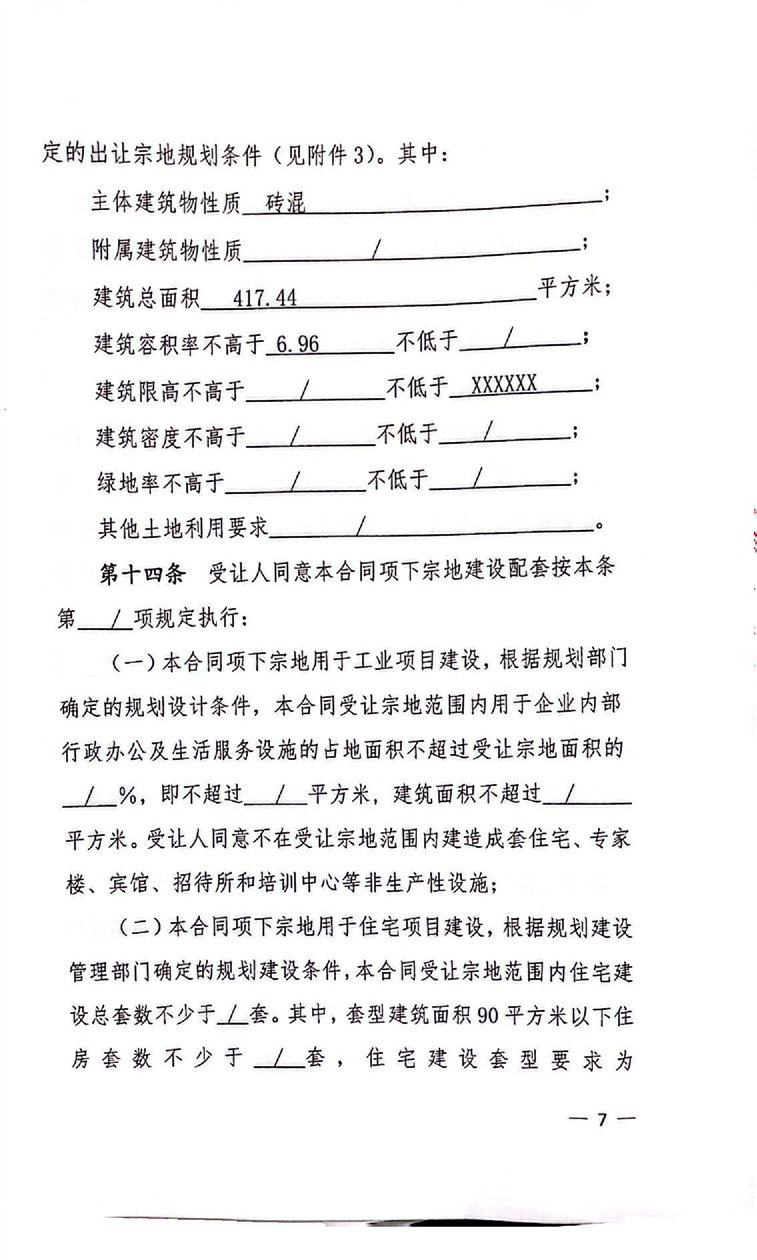 定的出让宗地规划条件（见附件3）。其中：
主体建筑物性质 砖混 ；
附属建筑物性质 / ；
建筑总面积 417.44 平方米；
建筑容积率不高于 6.96 不低于 / ；
建筑限高不高于 / 不低于 XXXXXX ；
建筑密度不高于 / 不低于 / ；
绿地率不高于 / 不低于 / ；
其他土地利用要求 / 。
第十四条 受让人同意本合同项下宗地建设配套按本条
第 / 项规定执行：
（一）本合同项下宗地用于工业项目建设，根据规划部门
确定的规划设计条件，本合同受让宗地范围内用于企业内部
行政办公及生活服务设施的占地面积不超过受让宗地面积的
/ %，即不超过 / 平方米，建筑面积不超过 /
平方米。受让人同意不在受让宗地范围内建造成套住宅、专家
楼、宾馆、招待所和培训中心等非生产性设施；
（二）本合同项下宗地用于住宅项目建设，根据规划建设
管理部门确定的规划建设条件，本合同受让宗地范围内住宅建
设总套数不少于 / 套。其中，套型建筑面积90平方米以下住
房套数不少于 / 套，住宅建设套型要求为
— 7 —